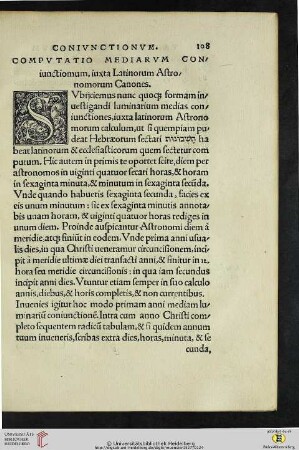 CONIVNCTIONVM. 108
COMPVTATIO MEDIARVM CON/
iunctionum, iuxta Latinorum Astro/
nomorum Canones.
SVbijciemus nunc quoq; formam in/
uestigandi luminarium medias con
iunctiones, iuxta latinorum Astrono
morum calculum, ut si quempiam pu
deat Hebræorum sectari ha
beat latinorum & ecclesiasticorum quem sectetur com
putum. Hic autem in primis te oportet scire, diem per
astronomos in uiginti quatuor secari horas, & horam
in sexaginta minuta, & minutum in sexaginta secūda.
Vnde quando habueris sexaginta secunda, facies ex
eis unum minutum: sic ex sexaginta minutis annota/
bis unam horam, & uiginti quatuor horas rediges in
unum diem. Proinde auspicantur Astronomi diem à
meridie, atq; finiūt in eodem. Vnde prima anni usua/
lis dies, in qua Christi ueneramur circuncisionem, inci
pit à meridie ultimæ diei transacti anni, & finitur in 12.
hora seu meridie circuncisionis: in qua iam secundus
incipit anni dies. Vtuntur etiam semper in suo calculo
annis, diebus, & horis completis, & non currentibus.
Inuenies igitur hoc modo primam anni mediam lu/
minariū coniunctionē. Intra cum anno Christi com
pleto sequentem radicū tabulam, & si quidem annum
tuum inueneris, scribas extra dies, horas, minuta, & se
cunda,
UNIVERSITÄTS-
BIBLIOTHEK
HEIDELBERG
© Universitätsbibliothek Heidelberg